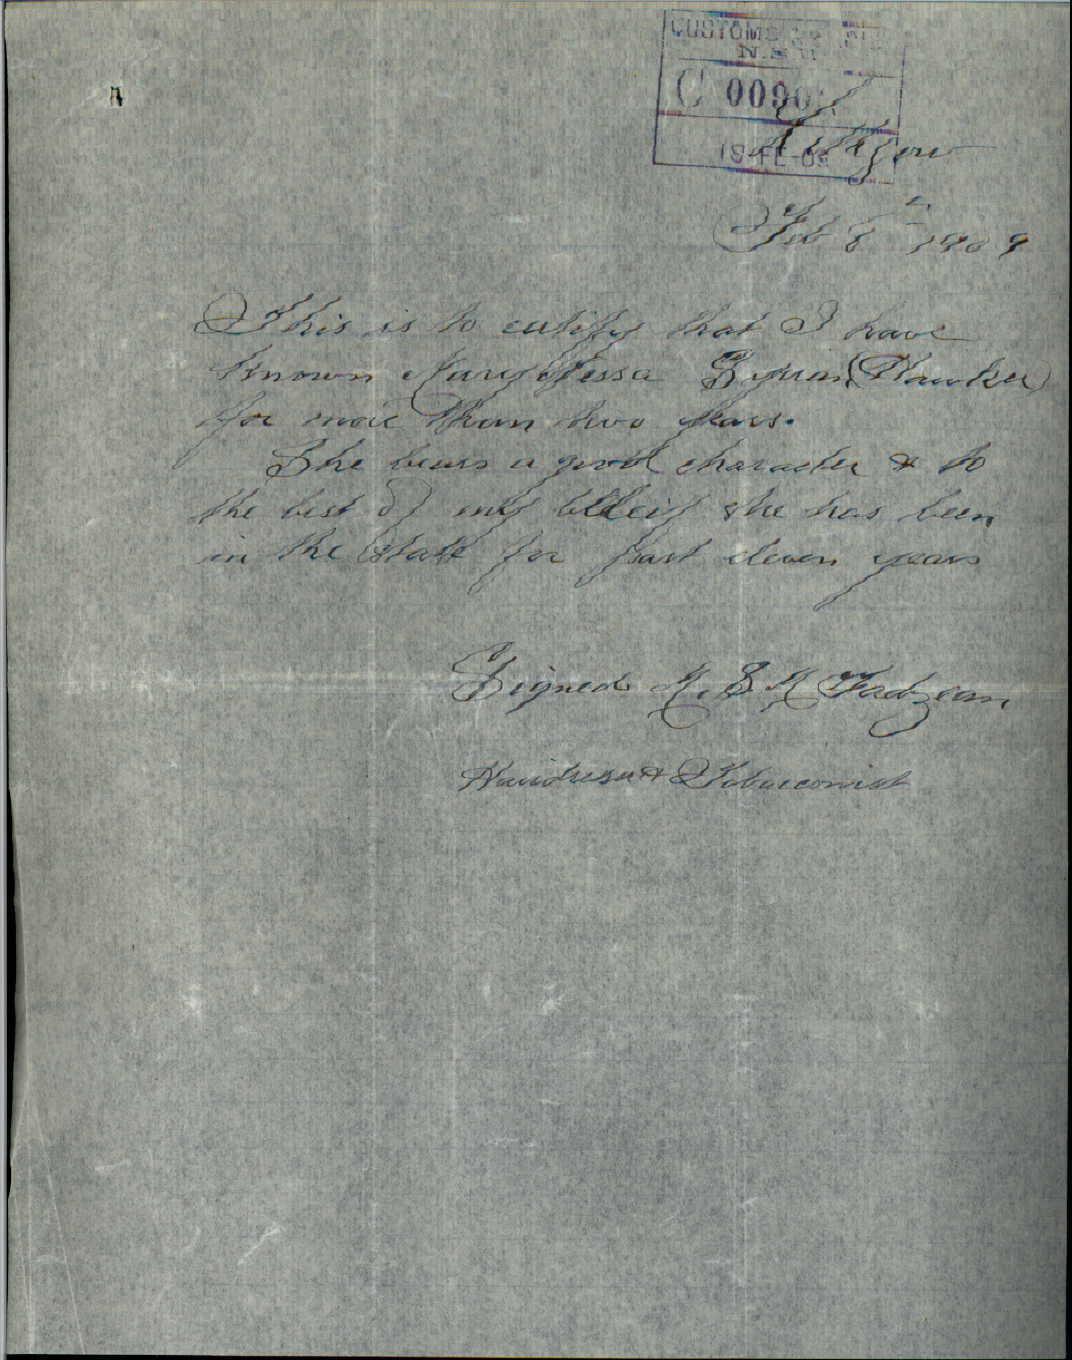 CUSTOMS
N.S.W.
C 0090
Lithgow
18-FE-09
Feb 8th 1909
This is to certify that I have
known Mary Nessa (Hawker)
for more than two years.
She bears a good character & to
the best of my beleif she has been
in the state for past eleven years
Signed
Hairdresser & Tobacconist